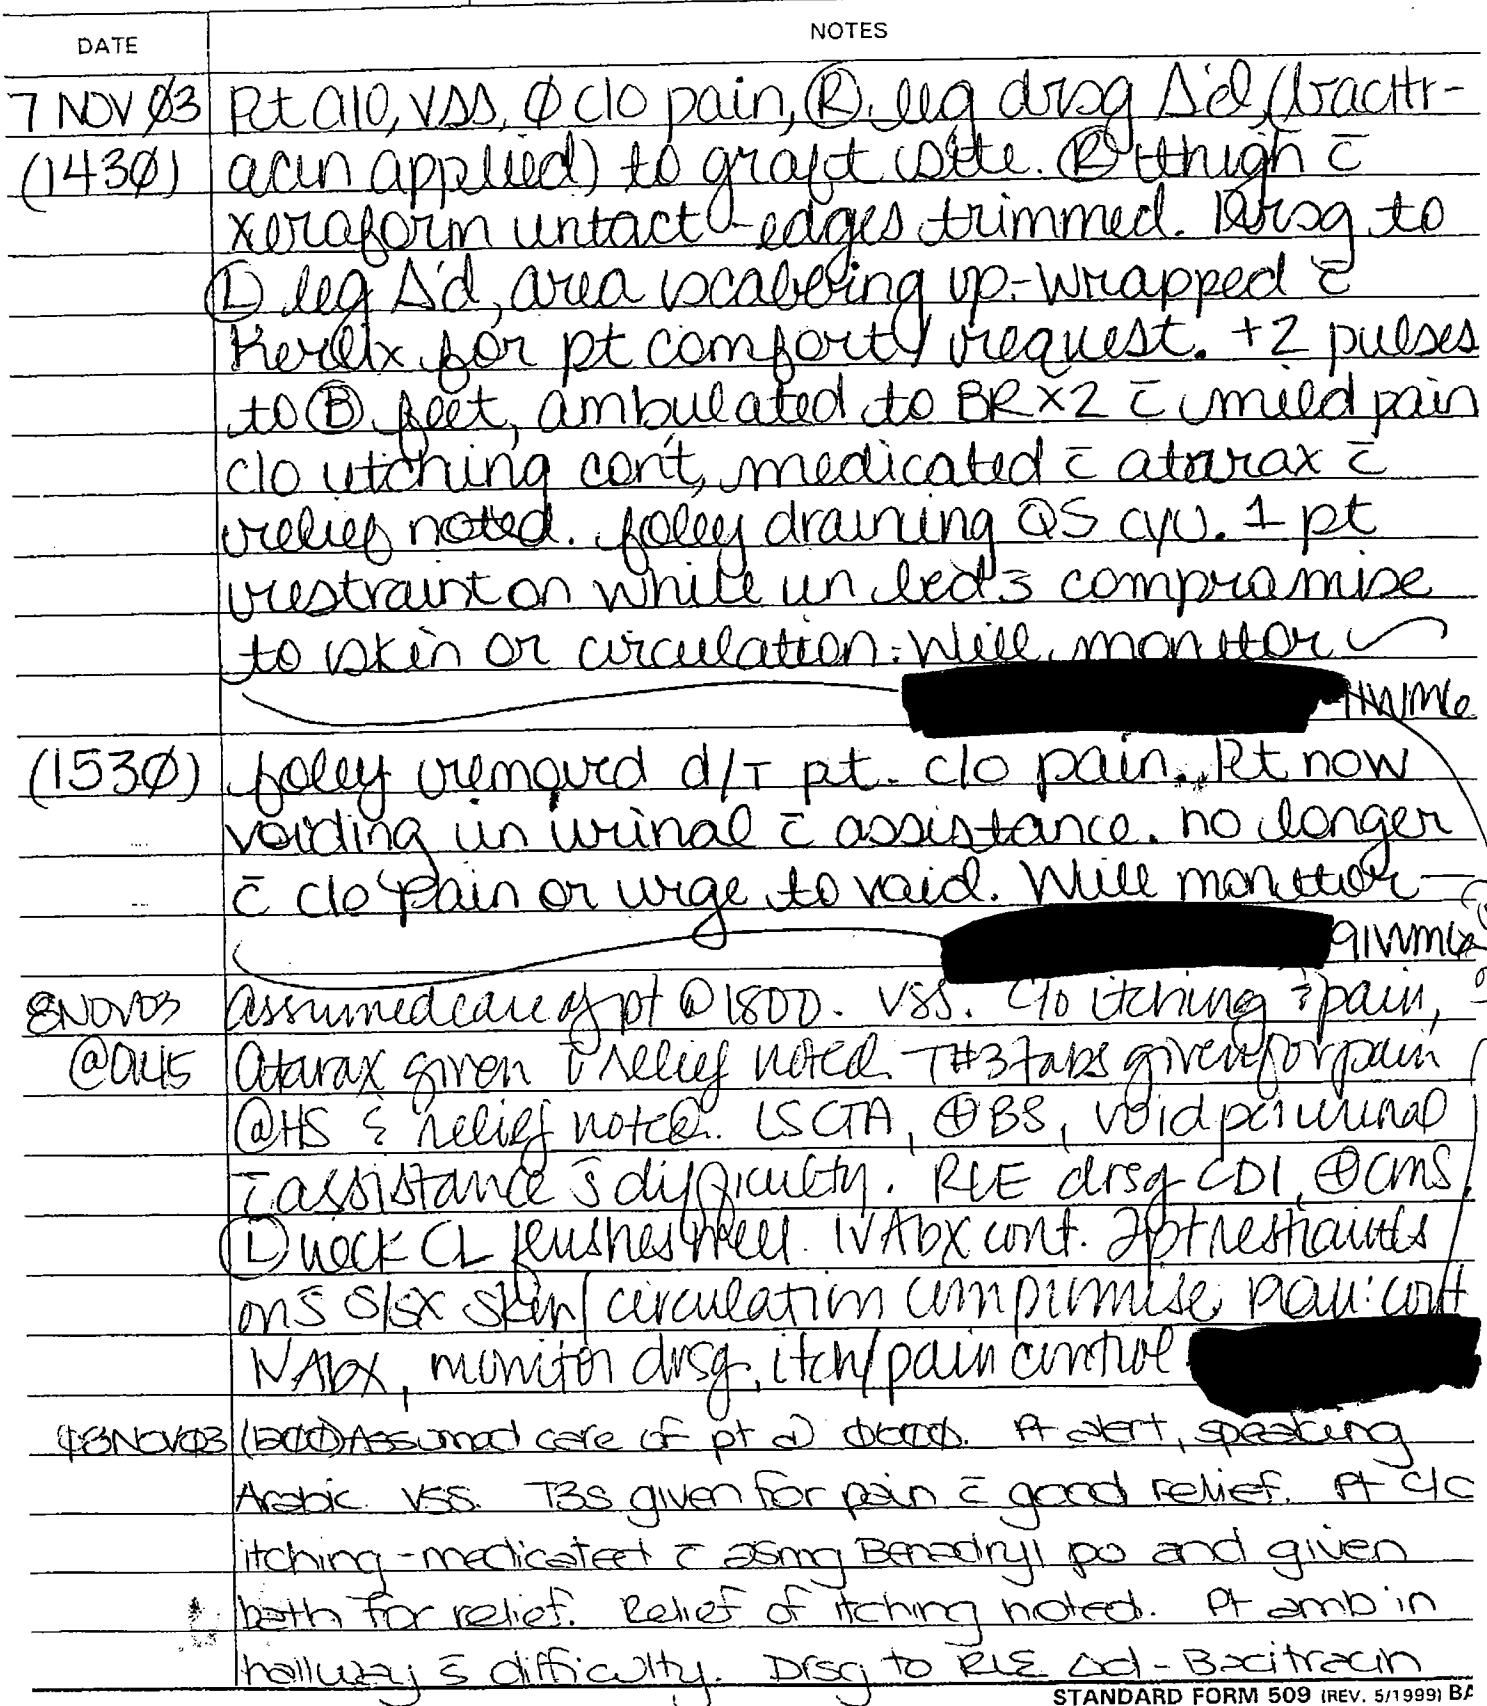 DATE NOTES
7 NOV Ø3 Pt a/o, VSS, Ø c/o pain, Ⓡ leg drsg Δ'd, (bacitr-
(143Ø) acin applied) to graft site. Ⓡ thigh c̄
xeraform intact - edges trimmed. Drsg to
Ⓛ leg Δ'd, area scabbing up - wrapped c̄
Kerlix for pt comfort/request. +2 pulses
to Ⓑ feet, ambulated to BR x2 c̄ mild pain
c/o itching con't, medicated c̄ atarax c̄
relief noted. foley draining QS cyu. 1 pt
restraint on while in bed s̄ compromise
to skin or circulation. Will monitor
91WM6
(153Ø) foley removed d/T pt. c/o pain. Pt now
voiding in urinal c̄ assistance. no longer
c̄ c/o pain or urge to void. Will monitor
91WM6
8NOV03 Assumed care of pt @ 1800. VSS. C/o itching & pain,
Atarax given c̄ relief noted. T#3 tabs given for pain
@HS & relief noted. LSCTA, ⊕BS, void per urinal
c̄ assistance s̄ difficulty. RLE drsg CDI, ⊕CMS.
Ⓛ neck CL flushes well. IV Abx cont. 2pt restraints
on s̄ s/sx skin/circulation compromise. Plan: cont
IV Abx, monitor drsg, itch/pain control
8NOVØ3 Assumed care of pt @ Pt alert, speaking
Arabic. VSS. T3s given for pain c̄ good relief. Pt c/o
itching - medicated c̄ 25mg Benadryl po and given
bath for relief. Relief of itching noted. Pt amb in
hallway s̄ difficulty. Drsg to RLE Δd - Bacitracin
STANDARD FORM 509 (REV. 5/1999)